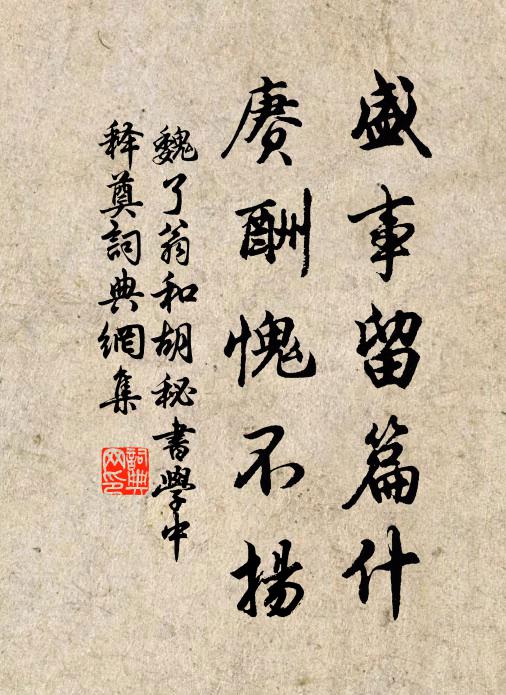 盛事留篇什
赓酬愧不揚
魏了翁和胡秘書學中
释奠詞典網集
詞典網印